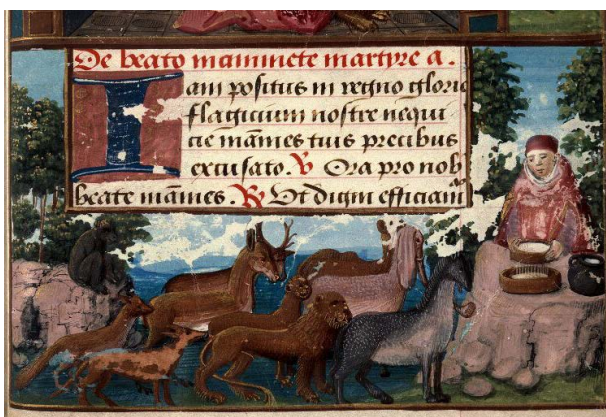 De beato mammete martyre a.
Iam positus in regno glorie
flagicium nostre nequi
cie mãmes tuis precibus
excusato. V Ora pro nob
beate mãmes. R Ut digni efficiam